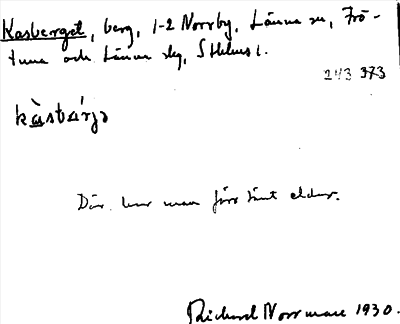 Kasberget, berg, 1-2 Norrby, Länna sn, Frö-
tuna och Länna skg, Sthlms l.
243 373
kàstbárjə
Där. har man förr tänt eldar.
Richard Norrman 1930.